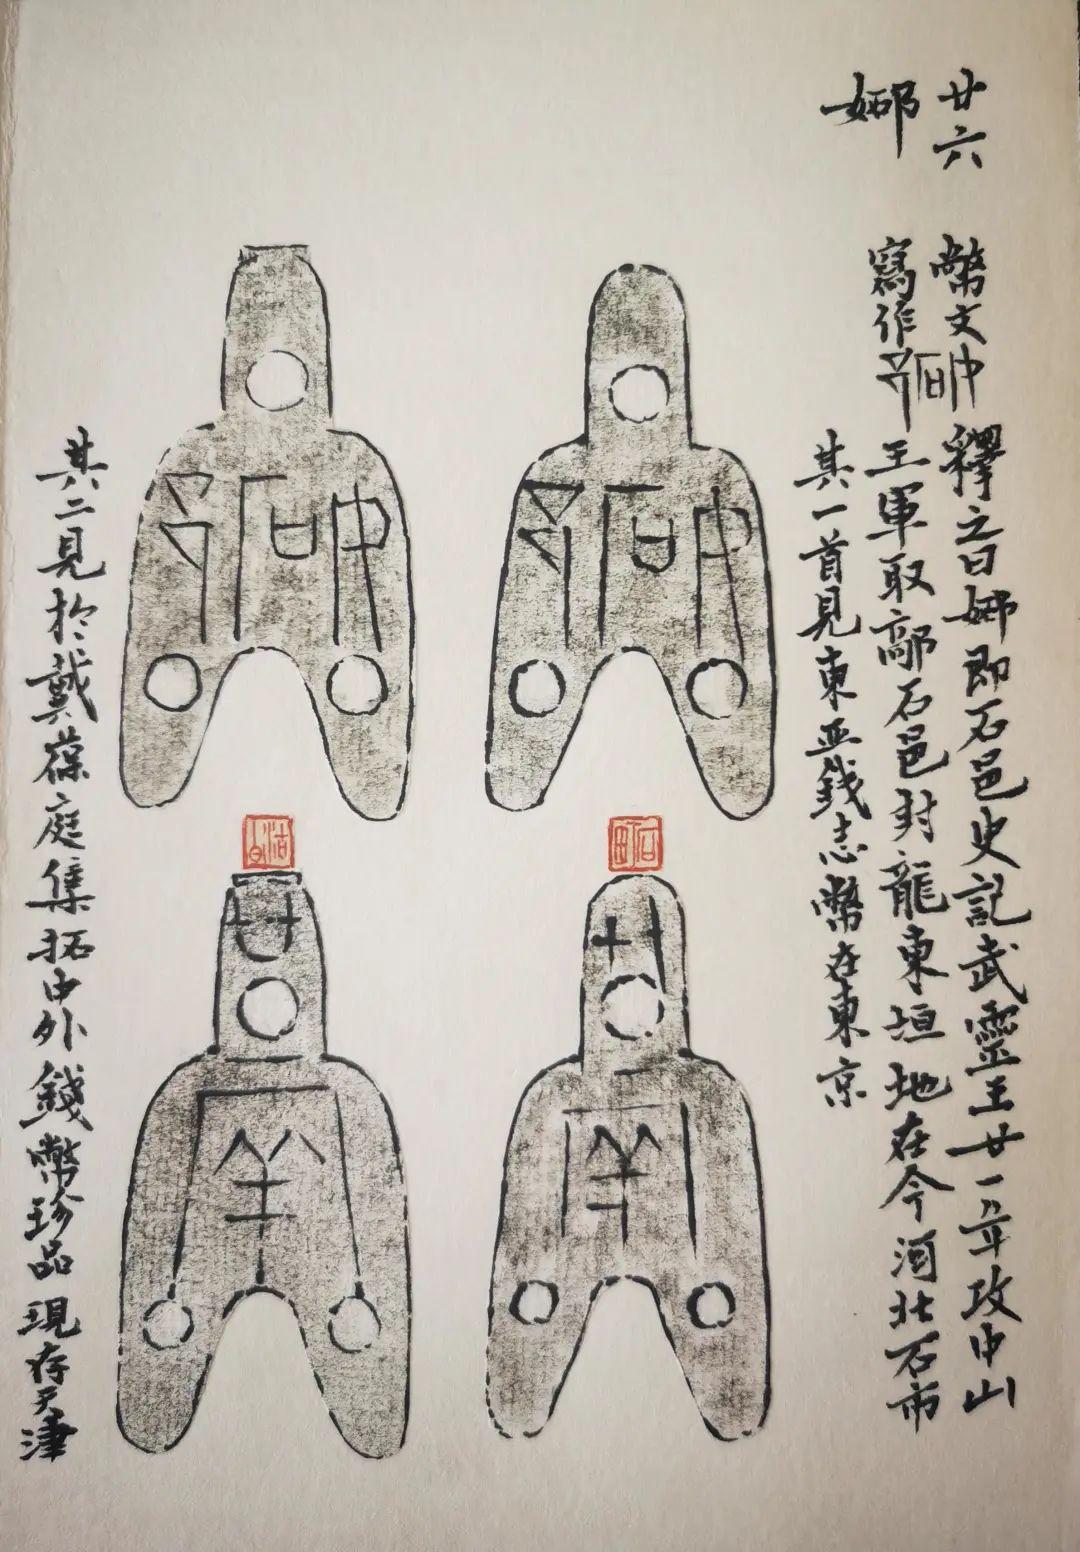 廿六
幣文
釋之曰 即石邑史記武靈王廿一年攻中山
寫作
王軍取鄗石邑封龍東垣地在今河北石市
其一首見東亚錢志幣在東京
其二見於戴葆庭集拓中外錢幣珍品現存天津